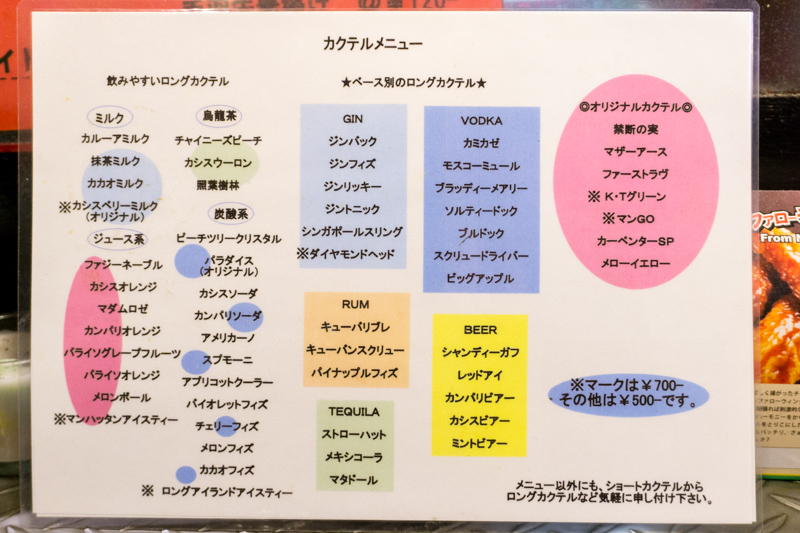 カクテルメニュー
飲みやすいロングカクテル
ミルク
カルーアミルク
抹茶ミルク
カカオミルク
※カシスベリーミルク
(オリジナル)
ジュース系
ファジーネーブル
カシスオレンジ
マダムロゼ
カンパリオレンジ
パライソグレープフルーツ
パライソオレンジ
メロンボール
※マンハッタンアイスティー
烏龍茶
チャイニーズピーチ
カシスウーロン
照葉樹林
炭酸系
ピーチツリークリスタル
パラダイス
(オリジナル)
カシスソーダ
カンパリソーダ
アメリカーノ
スプモーニ
アプリコットクーラー
バイオレットフィズ
チェリーフィズ
メロンフィズ
カカオフィズ
※ ロングアイランドアイスティー
★ベース別のロングカクテル★
GIN
ジンバック
ジンフィズ
ジンリッキー
ジントニック
シンガポールスリング
※ダイヤモンドヘッド
RUM
キューバリブレ
キューバンスクリュー
パイナップルフィズ
TEQUILA
ストローハット
メキシコーラ
マタドール
VODKA
カミカゼ
モスコーミュール
ブラッディーメアリー
ソルティードック
ブルドック
スクリュードライバー
ビッグアップル
BEER
シャンディーガフ
レッドアイ
カンパリビアー
カシスビアー
ミントビアー
◎オリジナルカクテル◎
禁断の実
マザーアース
ファーストラヴ
※ K・Tグリーン
※マンGO
カーペンターSP
メローイエロー
※マークは￥700-
その他は￥500-です。
メニュー以外にも、ショートカクテルから
ロングカクテルなど気軽に申し付け下さい。
ファロー
From